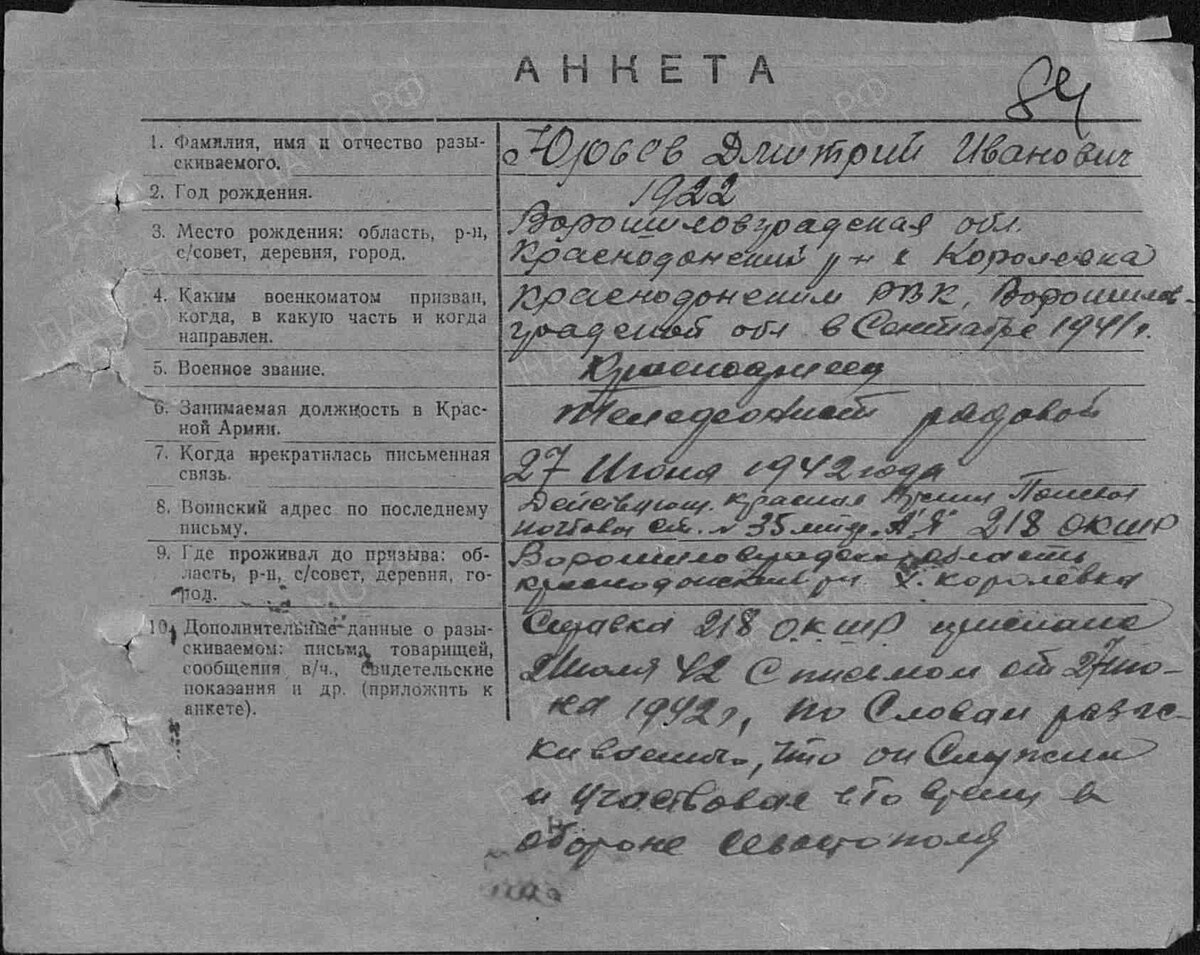 АНКЕТА
84
1. Фамилия, имя и отчество разы-
скиваемого.
Юрьев Дмитрий Иванович
2. Год рождения.
1922
3. Место рождения: область, р-н,
с/совет, деревня, город.
Ворошиловградская обл.
Краснодонский р-н х Королевка
4. Каким военкоматом призван,
когда, в какую часть и когда
направлен.
Краснодонским РВК, Ворошилов-
градской обл в Сентябре 1941 г.
5. Военное звание.
Красноармеец
6. Занимаемая должность в Крас-
ной Армии.
Телефонист рядовой
7. Когда прекратилась письменная
связь.
27 Июня 1942 года
8. Воинский адрес по последнему
письму.
Действующ. Красная Армия Полевая
почтовая ст. № 35 218 ОКШР
9. Где проживал до призыва: об-
ласть, р-н, с/совет, деревня, го-
род.
Ворошиловградская область
краснодонский рн. х. королевка
10. Дополнительные данные о разы-
скиваемом: письма товарищей,
сообщения в/ч., свидетельские
показания и др. (приложить к
анкете).
Справка 218 ОКШР прислана
2 Июля 42 С писмом от 27 ию-
ня 1942 г, по Словам разыс-
, что он Служил
и участвовал в
обороне Севастополя
ПАМО.РФ
ПАМЯТЬ
НАРОДА